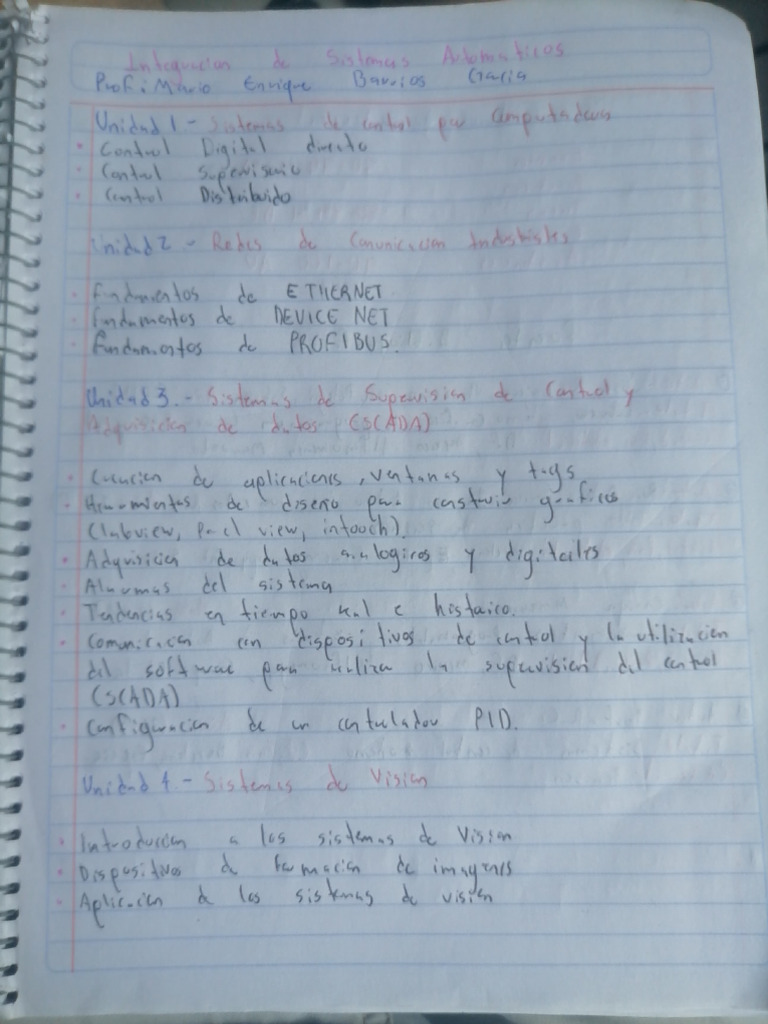 Integracion de Sistemas Automaticos
Prof: Mario Enrique Barrios Garcia
Unidad 1 - Sistemas de control por computadoras
• Control Digital directo
• Control Supervisorio
• Control Distribuido
Unidad 2 - Redes de Comunicacion Industriales
• Fundamentos de ETHERNET
• Fundamentos de DEVICE NET
• Fundamentos de PROFIBUS.
Unidad 3.- Sistemas de Supervision de Control y
Adquisicion de datos (SCADA)
• Creacion de aplicaciones, ventanas y tags
• Herramientas de diseño para construir graficos
(labview, panel view, intouch).
• Adquisicion de datos analogicos y digitales
• Alarmas del sistema
• Tendencias en tiempo real e historico.
• Comunicacion con dispositivos de control y la utilizacion
del software para utilizar la supervision del control
(SCADA)
• Configuracion de un controlador PID.
Unidad 4.- Sistemas de Vision
• Introduccion a los sistemas de Vision
• Dispositivos de formacion de imagenes
• Aplicacion de los sistemas de vision